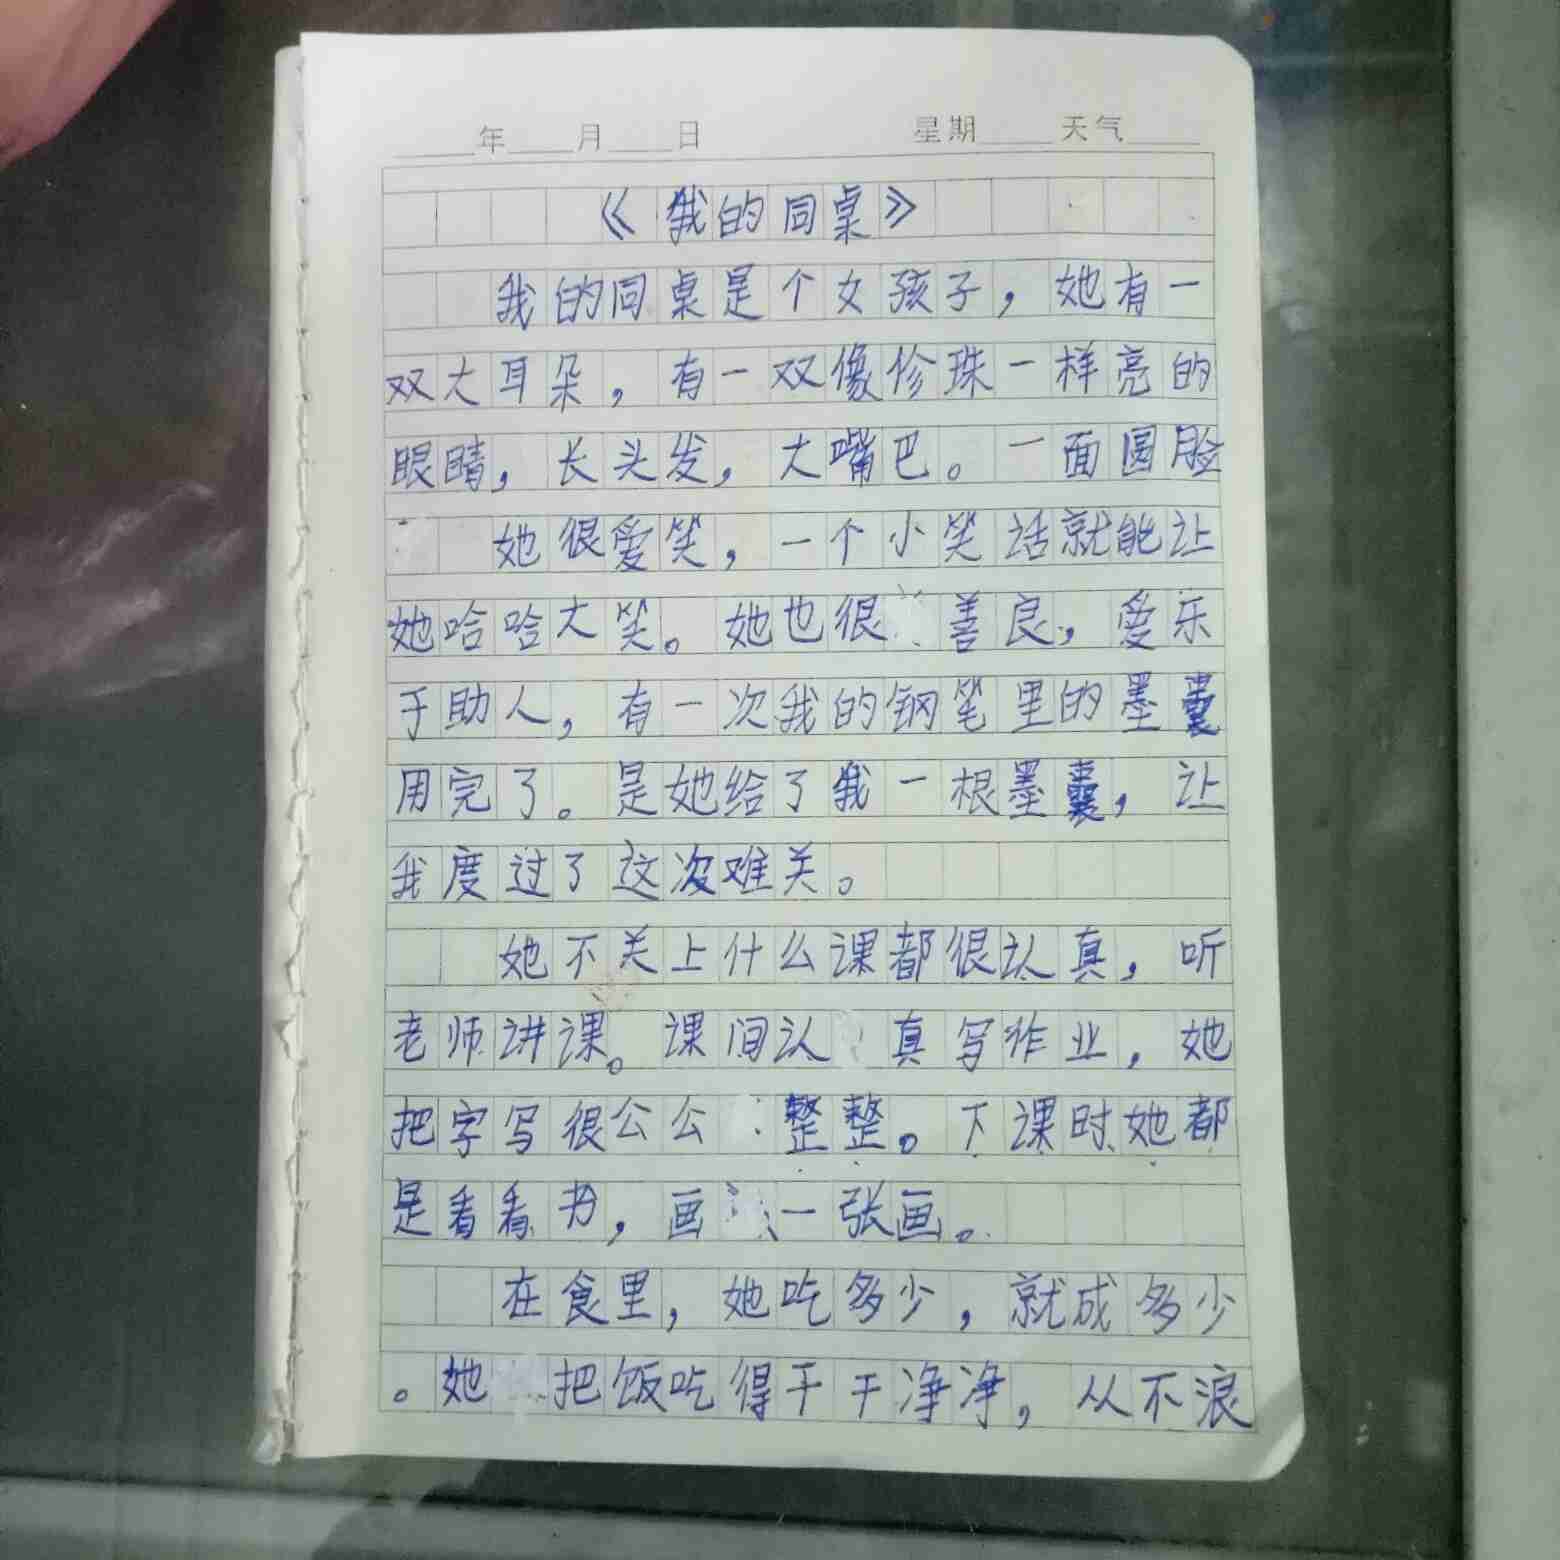 年 月 日 星期 天气
《我的同桌》
我的同桌是个女孩子，她有一
双大耳朵，有一双像珍珠一样亮的
眼睛，长头发，大嘴巴。一面圆脸
她很爱笑，一个小笑话就能让
她哈哈大笑。她也很善良，爱乐
于助人，有一次我的钢笔里的墨囊
用完了。是她给了我一根墨囊，让
我度过了这次难关。
她不关上什么课都很认真，听
老师讲课。课间认真写作业，她
把字写很公公整整。下课时她都
是看看书，画一张画。
在食里，她吃多少，就成多少
。她把饭吃得干干净净，从不浪